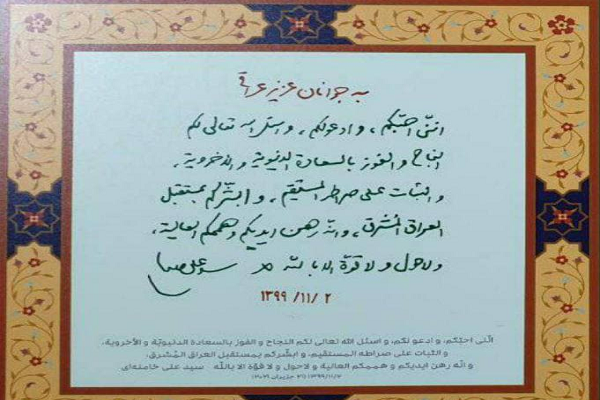 به جوانان عزیز عراق
انّنی احبّکم، و ادعولکم، و اسئل الله تعالی لکم
النجاح و الفوز بالسعادة الدنیویة و الاخرویة،
و الثبات علی صراطه المستقیم، و ابشّرکم بمستقبل
العراق المُشرق، و انّه رهن ایدیکم و هممکم العالیة،
و لاحول و لا قوة الا بالله سید علی خامنه‌ای
۱۳۹۹/۱۱/۲
انّنی احبّکم، و ادعو لکم، و اسئل الله تعالی لکم النجاح و الفوز بالسعادة الدنیویّة و الأخرویة،
و الثبات علی صراطه المستقیم، و ابشّرکم بمستقبل العراق المُشرق،
و انّه رهن ایدیکم و هممکم العالیة و لاحول و لا قوّة الا بالله سید علی خامنه‌ای